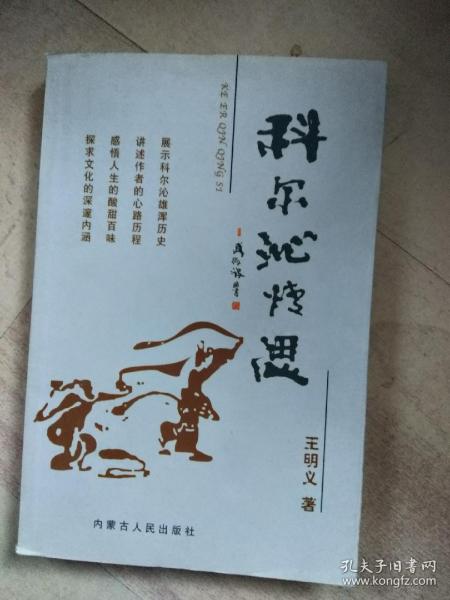 科尔沁情思
KE ER QIN QING SI
展示科尔沁雄浑历史
讲述作者的心路历程
感悟人生的酸甜百味
探求文化的深邃内涵
王明义 著
内蒙古人民出版社
孔夫子旧书网
www.kongfz.com